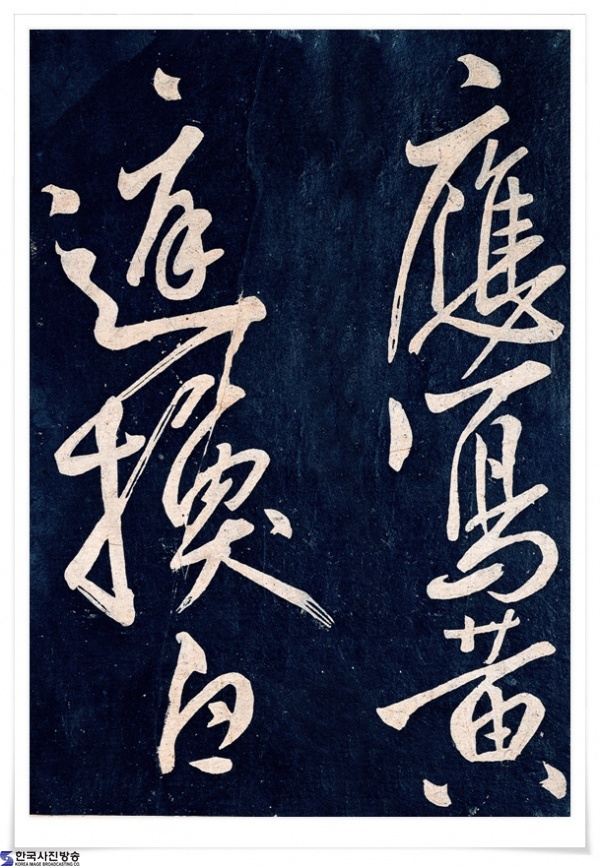 應寫黃
庭換白
한국사진방송
KOREA IMAGE BROADCASTING CO.